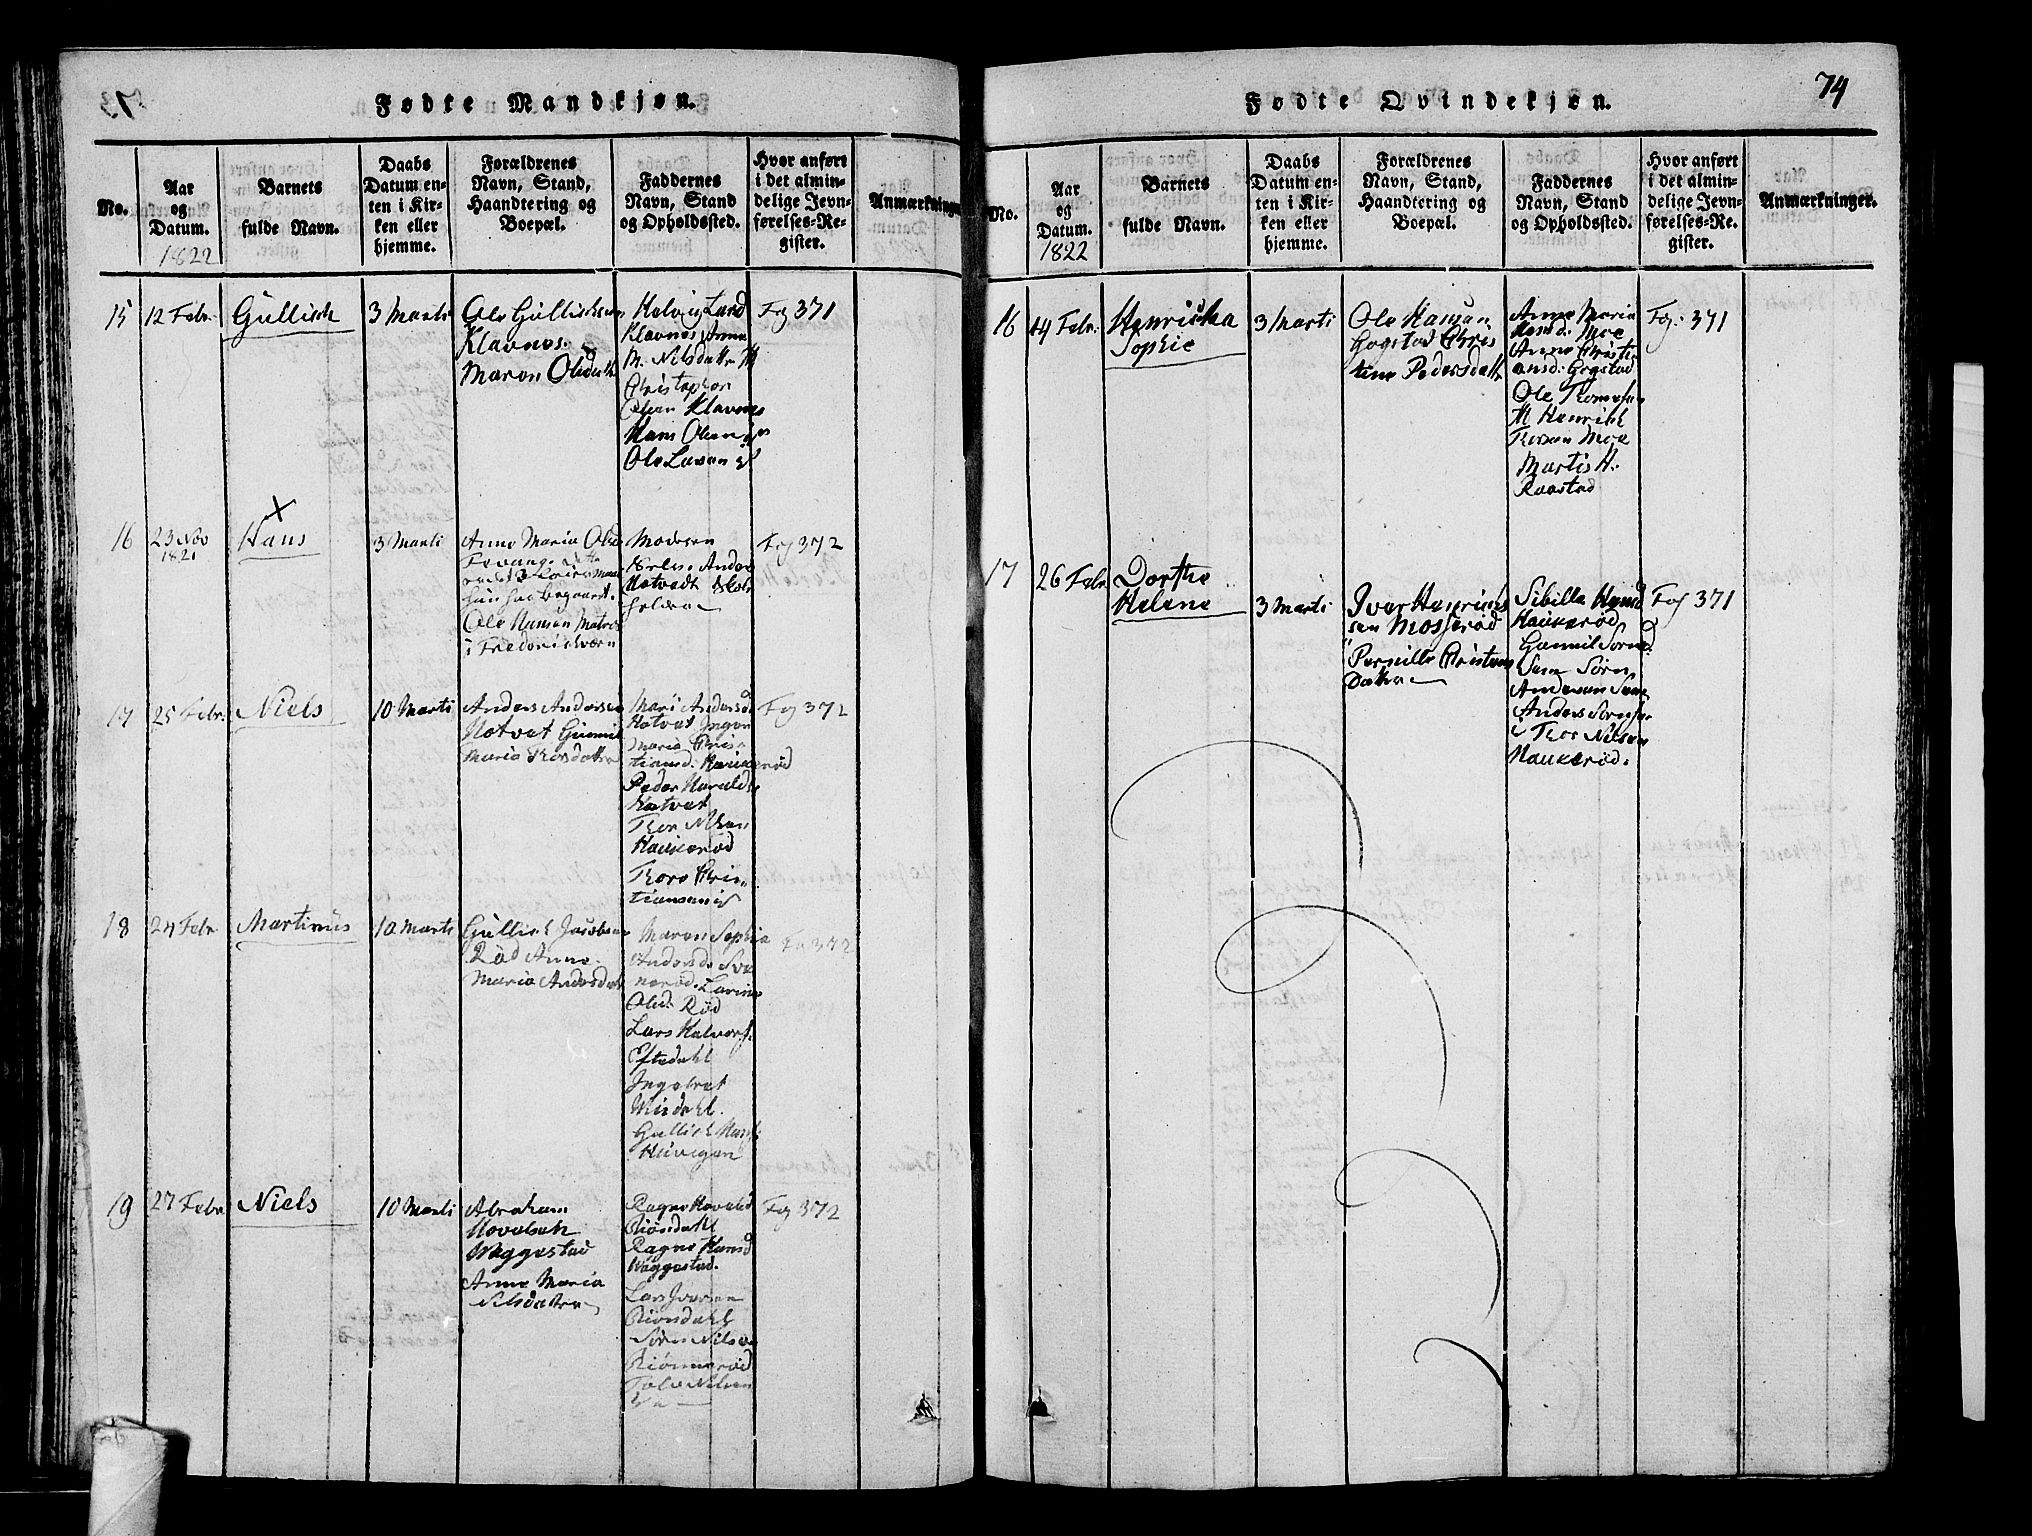 Fødte Mandkjøn.
No.
Aar
og
Datum.
1822
Barnets
fulde Navn.
Daabs
Datum en-
ten i Kir-
ken eller
hjemme.
Forældrenes
Navn, Stand,
Haandtering og
Boepæl.
Faddernes
Navn, Stand
og Opholdssted.
Hvor anført
i det almin-
delige Jevn-
førelses-Re-
gister.
Anmærkninger
15
12 Febr.
Gullich
3 Marti
Ole Gullichsen
Klavnes.
Maren Olsdatt
Helvig Lard
Klavnes Anne
M. Nilsdattr
Christopher
Olsen Klavnes
Hans Olsen
Ole Larsen
Fog 371
16
23 Nov
1821
Hans
3 Marti
Anne Maria Olsd
Ole Hansen Matros
i Frederichsværn
Anders
Hotvedt
Fog 372
17
25 Febr.
Niels
10 Marti
Anders Andersen
Hotvet Gunnil
Maria Thorsdatter
Mari Andersd
Hotvet Inger
Maria Chris-
tiansd. Haukerød
Peder Harald
Hotvet
Thor Nilsen
Haukerød
Thore Chris-
tiansen
Fog 372
18
24 Febr
Martinus
10 Marti
Gullich Jacobsen
Rød Anne
Maria Andersdatt
Maren Sophia
Andersd
Olsd. Rød
Lars Halvors.
Eftedahl
Misdahl.
Gullich
Fog 372
19
27 Febr
Niels
10 Marti
Abraham
Hovelsen
Weggestad
Anne Maria
Nilsdatter
Ragne Hovelsd
Biønsdahl
Ragne Hansd
Weggestad.
Lars Iversen
Biønsdahl
Søren Nilsen
Fog 372
74
Fødte Qvindekjøn.
No.
Aar
og
Datum.
1822
Barnets
fulde Navn.
Daabs
Datum en-
ten i Kir-
ken eller
hjemme.
Forældrenes
Navn, Stand,
Haandtering og
Boepæl.
Faddernes
Navn, Stand
og Opholdssted.
Hvor anført
i det almin-
delige Jevn-
førelses-Re-
gister.
Anmærkninger.
16
14 Febr.
Henricka
Sophie
3 Marti
Ole Hansen
Gogstad Chris
tine Pedersdattr
Anne Maria
Hansd. Moe
Anne Christi
ansd. Gogstad
Ole Thomesen
Henrich
Thorsen Moe
Martis H.
Raastad
Fog. 371
17
26 Febr
Dorthe
Helene
3 Marti
Iver Henrichs
sen Mosserød
Pernille Christens
Datter
Sibilla Hansd
Haukerød
Gunnil Sørnsd.
Sam Sørn
Andersen Sam
Anders Sørnsen
Thor Nilsen
Haukerød.
Fog 371